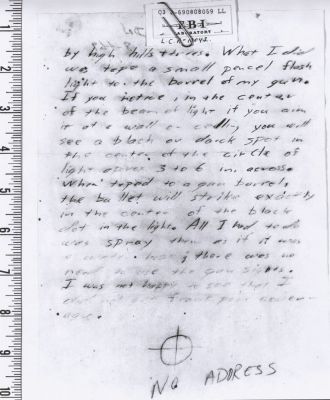 FBI
LABORATORY
by high hills trees. What I did
was tape a small pencel flash
light to the barrel of my gun.
If you notice, in the center
of the beam of light if you aim
it at a wall or you will
see a black or darck spot in
the center of the circle of
light about 3 to 6 in. across.
When taped to a gun barrel,
the bullet will strike exactly
in the center of the black
dot in the light. All I had to do
was spray them as if it was
a water hose; there was no
need to use the gun sights.
I was not happy to see that I
did not get front page cover-
age.
NO ADDRESS
1
2
3
4
5
6
7
8
9
10